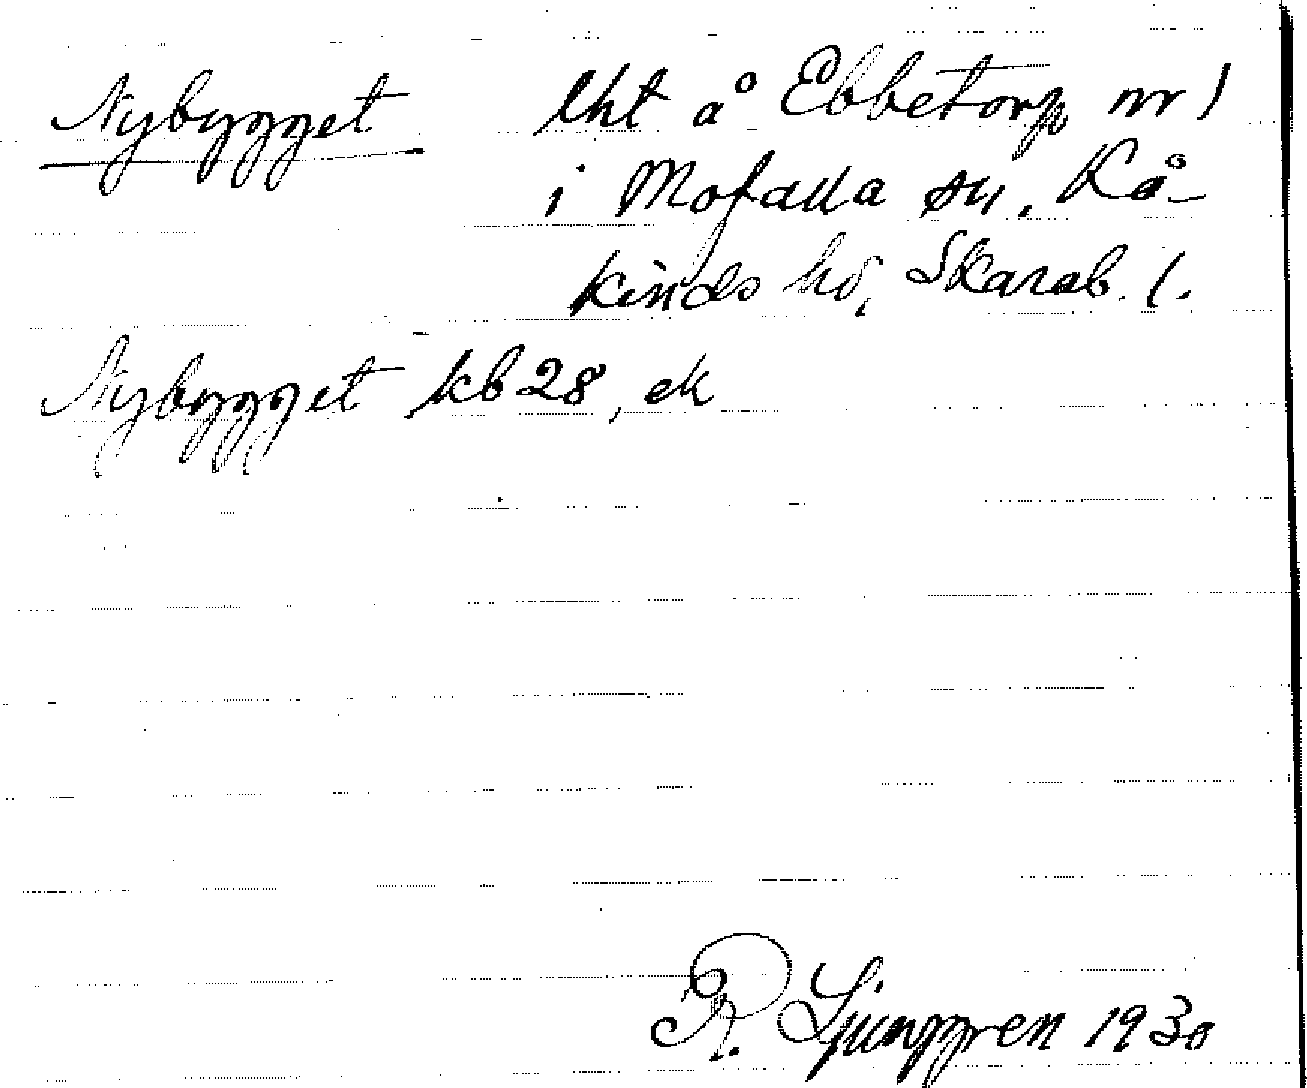 Nybygget lht å Ebbetorp nr 1
i Mofalla sn, Kå-
kinds hd, Skarab. l.
Nybygget kb 28, ek
R. Ljunggren 1930